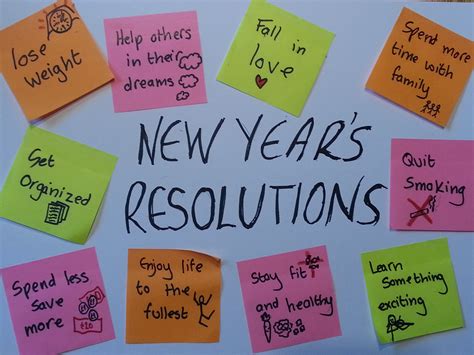 lose
weight
Help others
in their
dreams
Fall in
love
Spend more
time with
family
Get
Organized
NEW YEAR'S
RESOLUTIONS
Quit
Smoking
Spend less
save
more
£20
Enjoy life
to the
fullest
Stay fit
and healthy
Learn
Something
exciting